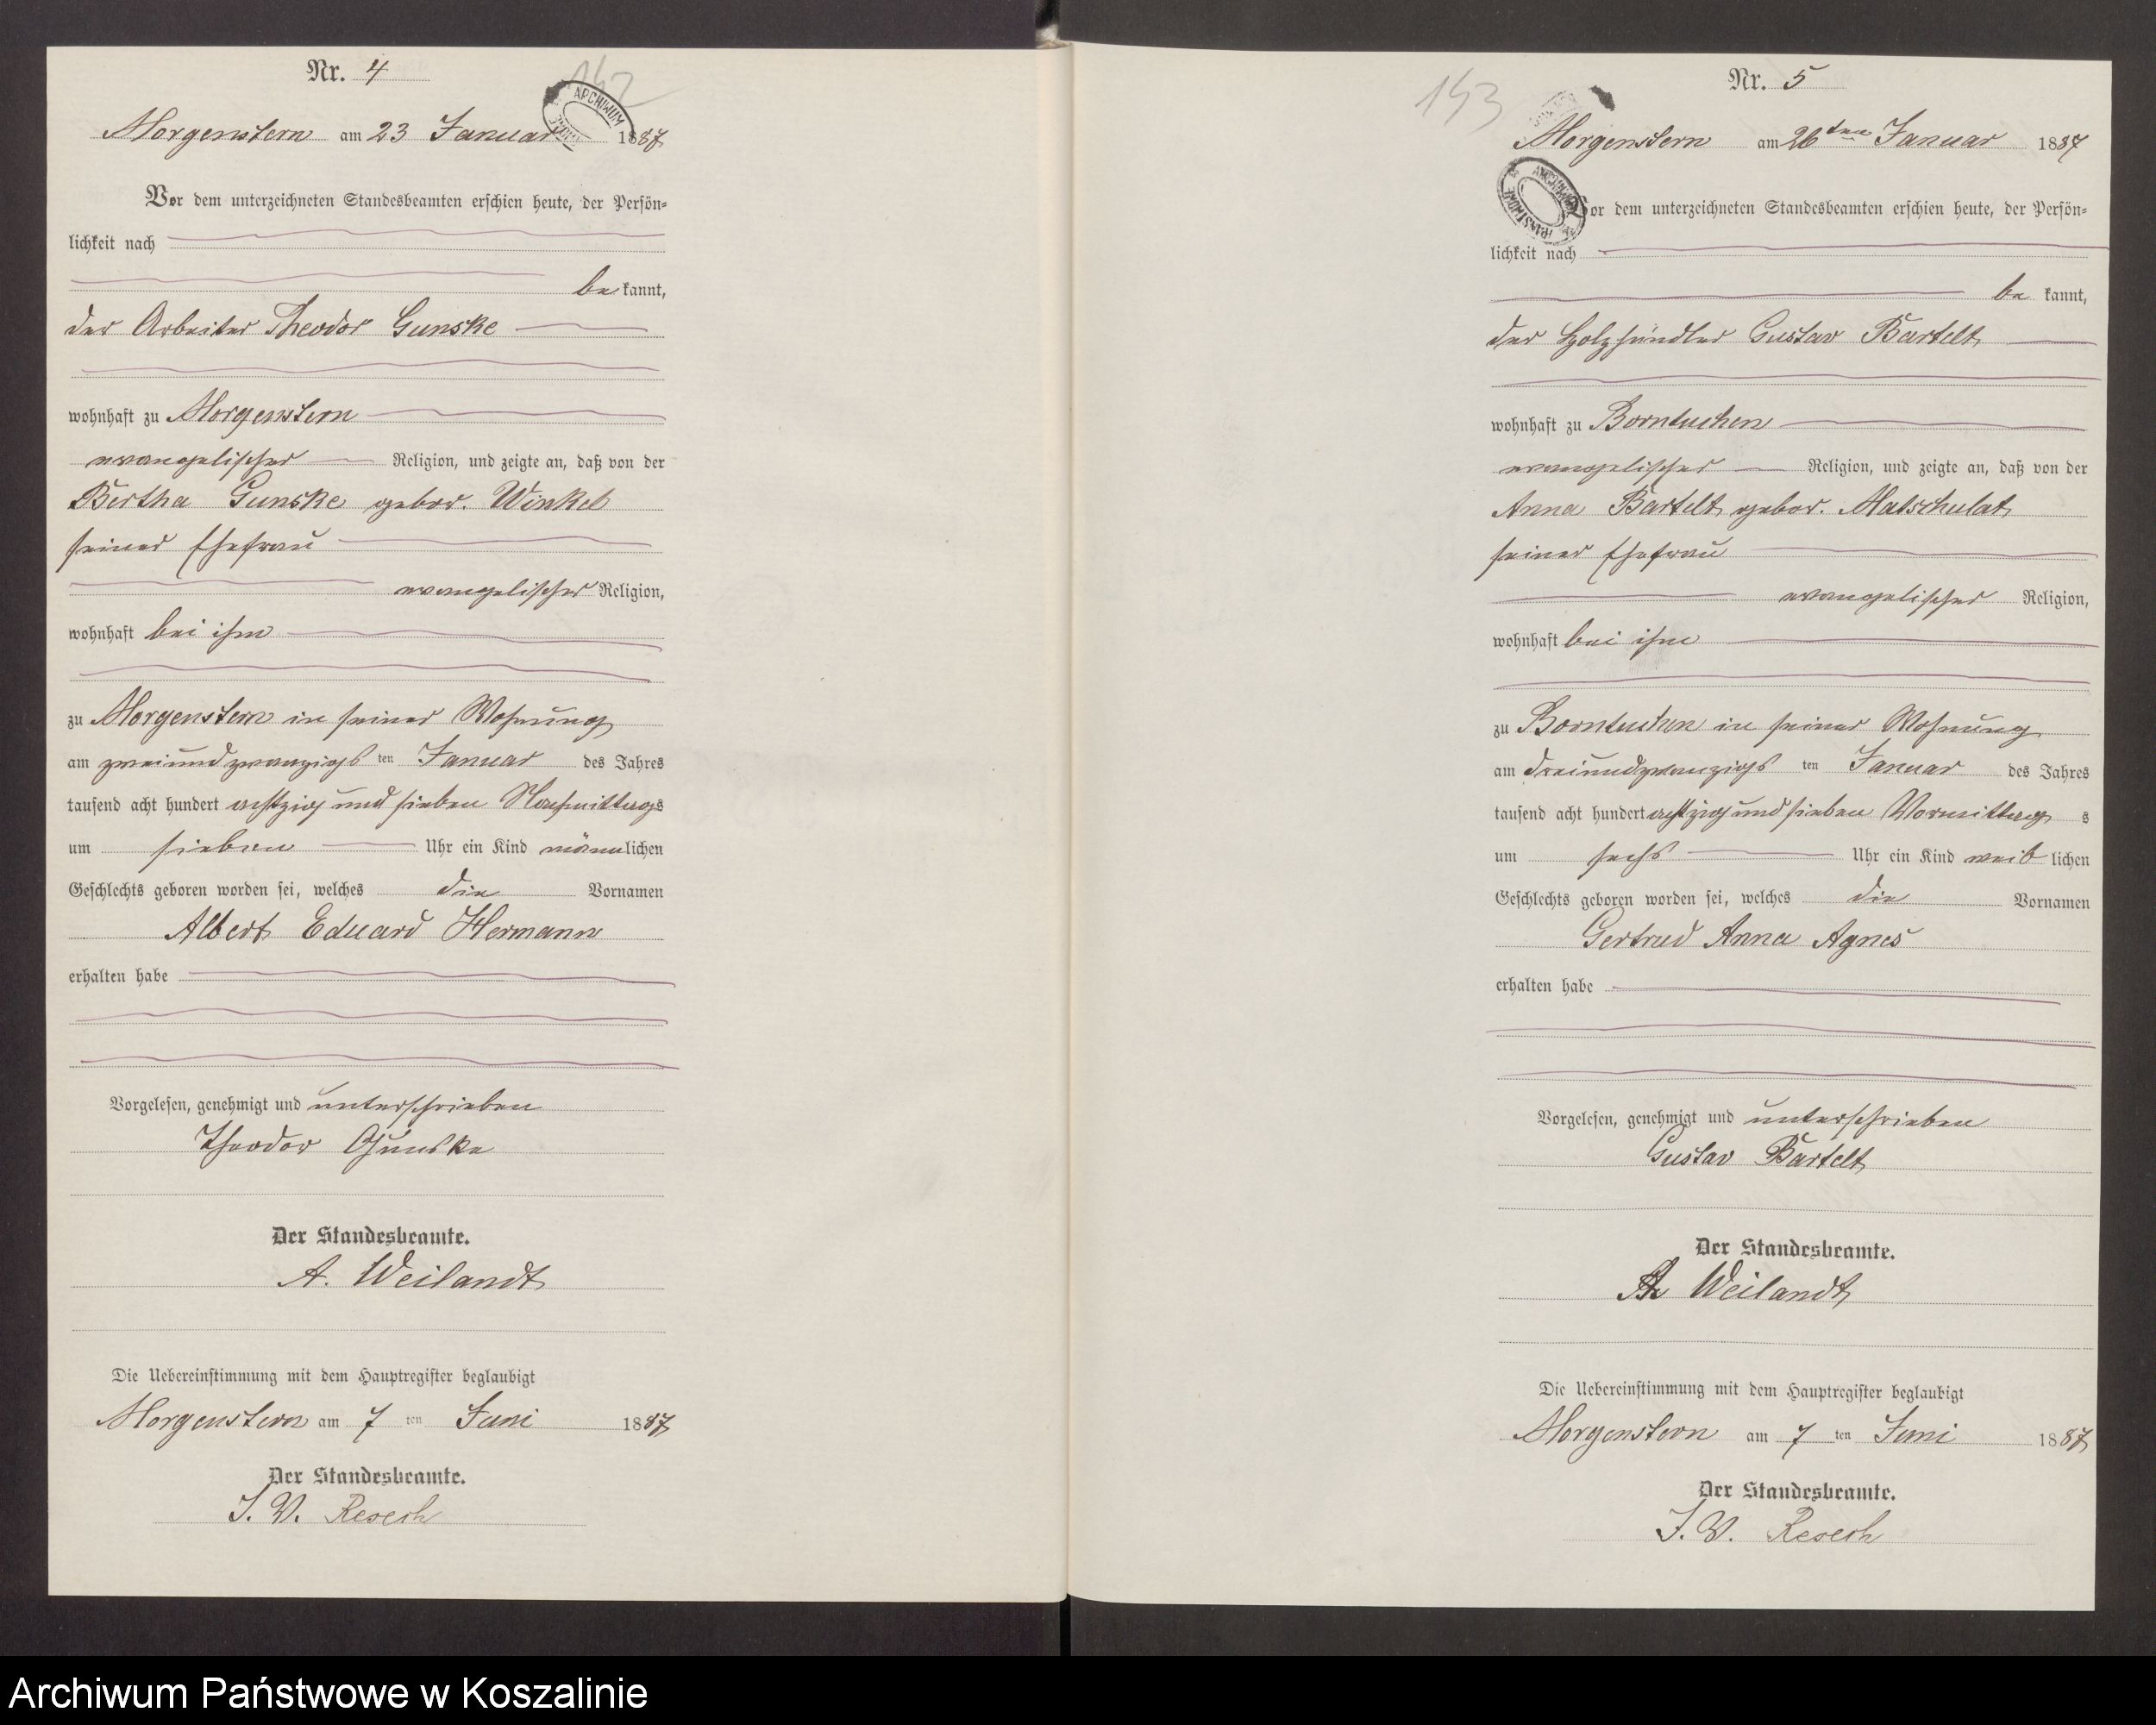 Nr. 4
142
ARCHIWUM
Morgenstern am 23 Januar 1887
Vor dem unterzeichneten Standesbeamten erschien heute, der Persön-
lichkeit nach
be kannt,
der Arbeiter Theodor Gunske
wohnhaft zu Morgenstern
evangelischer Religion, und zeigte an, daß von der
Bertha Gunske gebor. Winkel
seiner Ehefrau
evangelischer Religion,
wohnhaft bei ihm
zu Morgenstern in seiner Wohnung
am zweiundzwanzigs ten Januar des Jahres
tausend acht hundert achtzig und sieben Nachmittags
um sieben Uhr ein Kind männlichen
Geschlechts geboren worden sei, welches die Vornamen
Albert Eduard Hermann
erhalten habe
Vorgelesen, genehmigt und unterschrieben
Theodor Gunske
Der Standesbeamte.
A. Weilandt
Die Uebereinstimmung mit dem Hauptregister beglaubigt
Morgenstern am 7 ten Juni 1887
Der Standesbeamte.
I. V. Resech
Nr. 5
143
Morgenstern am 26ten Januar 1887
Vor dem unterzeichneten Standesbeamten erschien heute, der Persön-
lichkeit nach
be kannt,
der Holzhändler Gustav Bartelt
wohnhaft zu Borntuchen
evangelischer Religion, und zeigte an, daß von der
Anna Bartelt gebor. Matschulat
seiner Ehefrau
evangelischer Religion,
wohnhaft bei ihm
zu Borntuchen in seiner Wohnung
am dreiundzwanzigs ten Januar des Jahres
tausend acht hundert achtzig und sieben Vormittag s
um sechs Uhr ein Kind weib lichen
Geschlechts geboren worden sei, welches die Vornamen
Gertrud Anna Agnes
erhalten habe
Vorgelesen, genehmigt und unterschrieben
Gustav Bartelt
Der Standesbeamte.
A. Weilandt
Die Uebereinstimmung mit dem Hauptregister beglaubigt
Morgenstern am 7 ten Juni 1887
Der Standesbeamte.
I. V. Resech
Archiwum Państwowe w Koszalinie